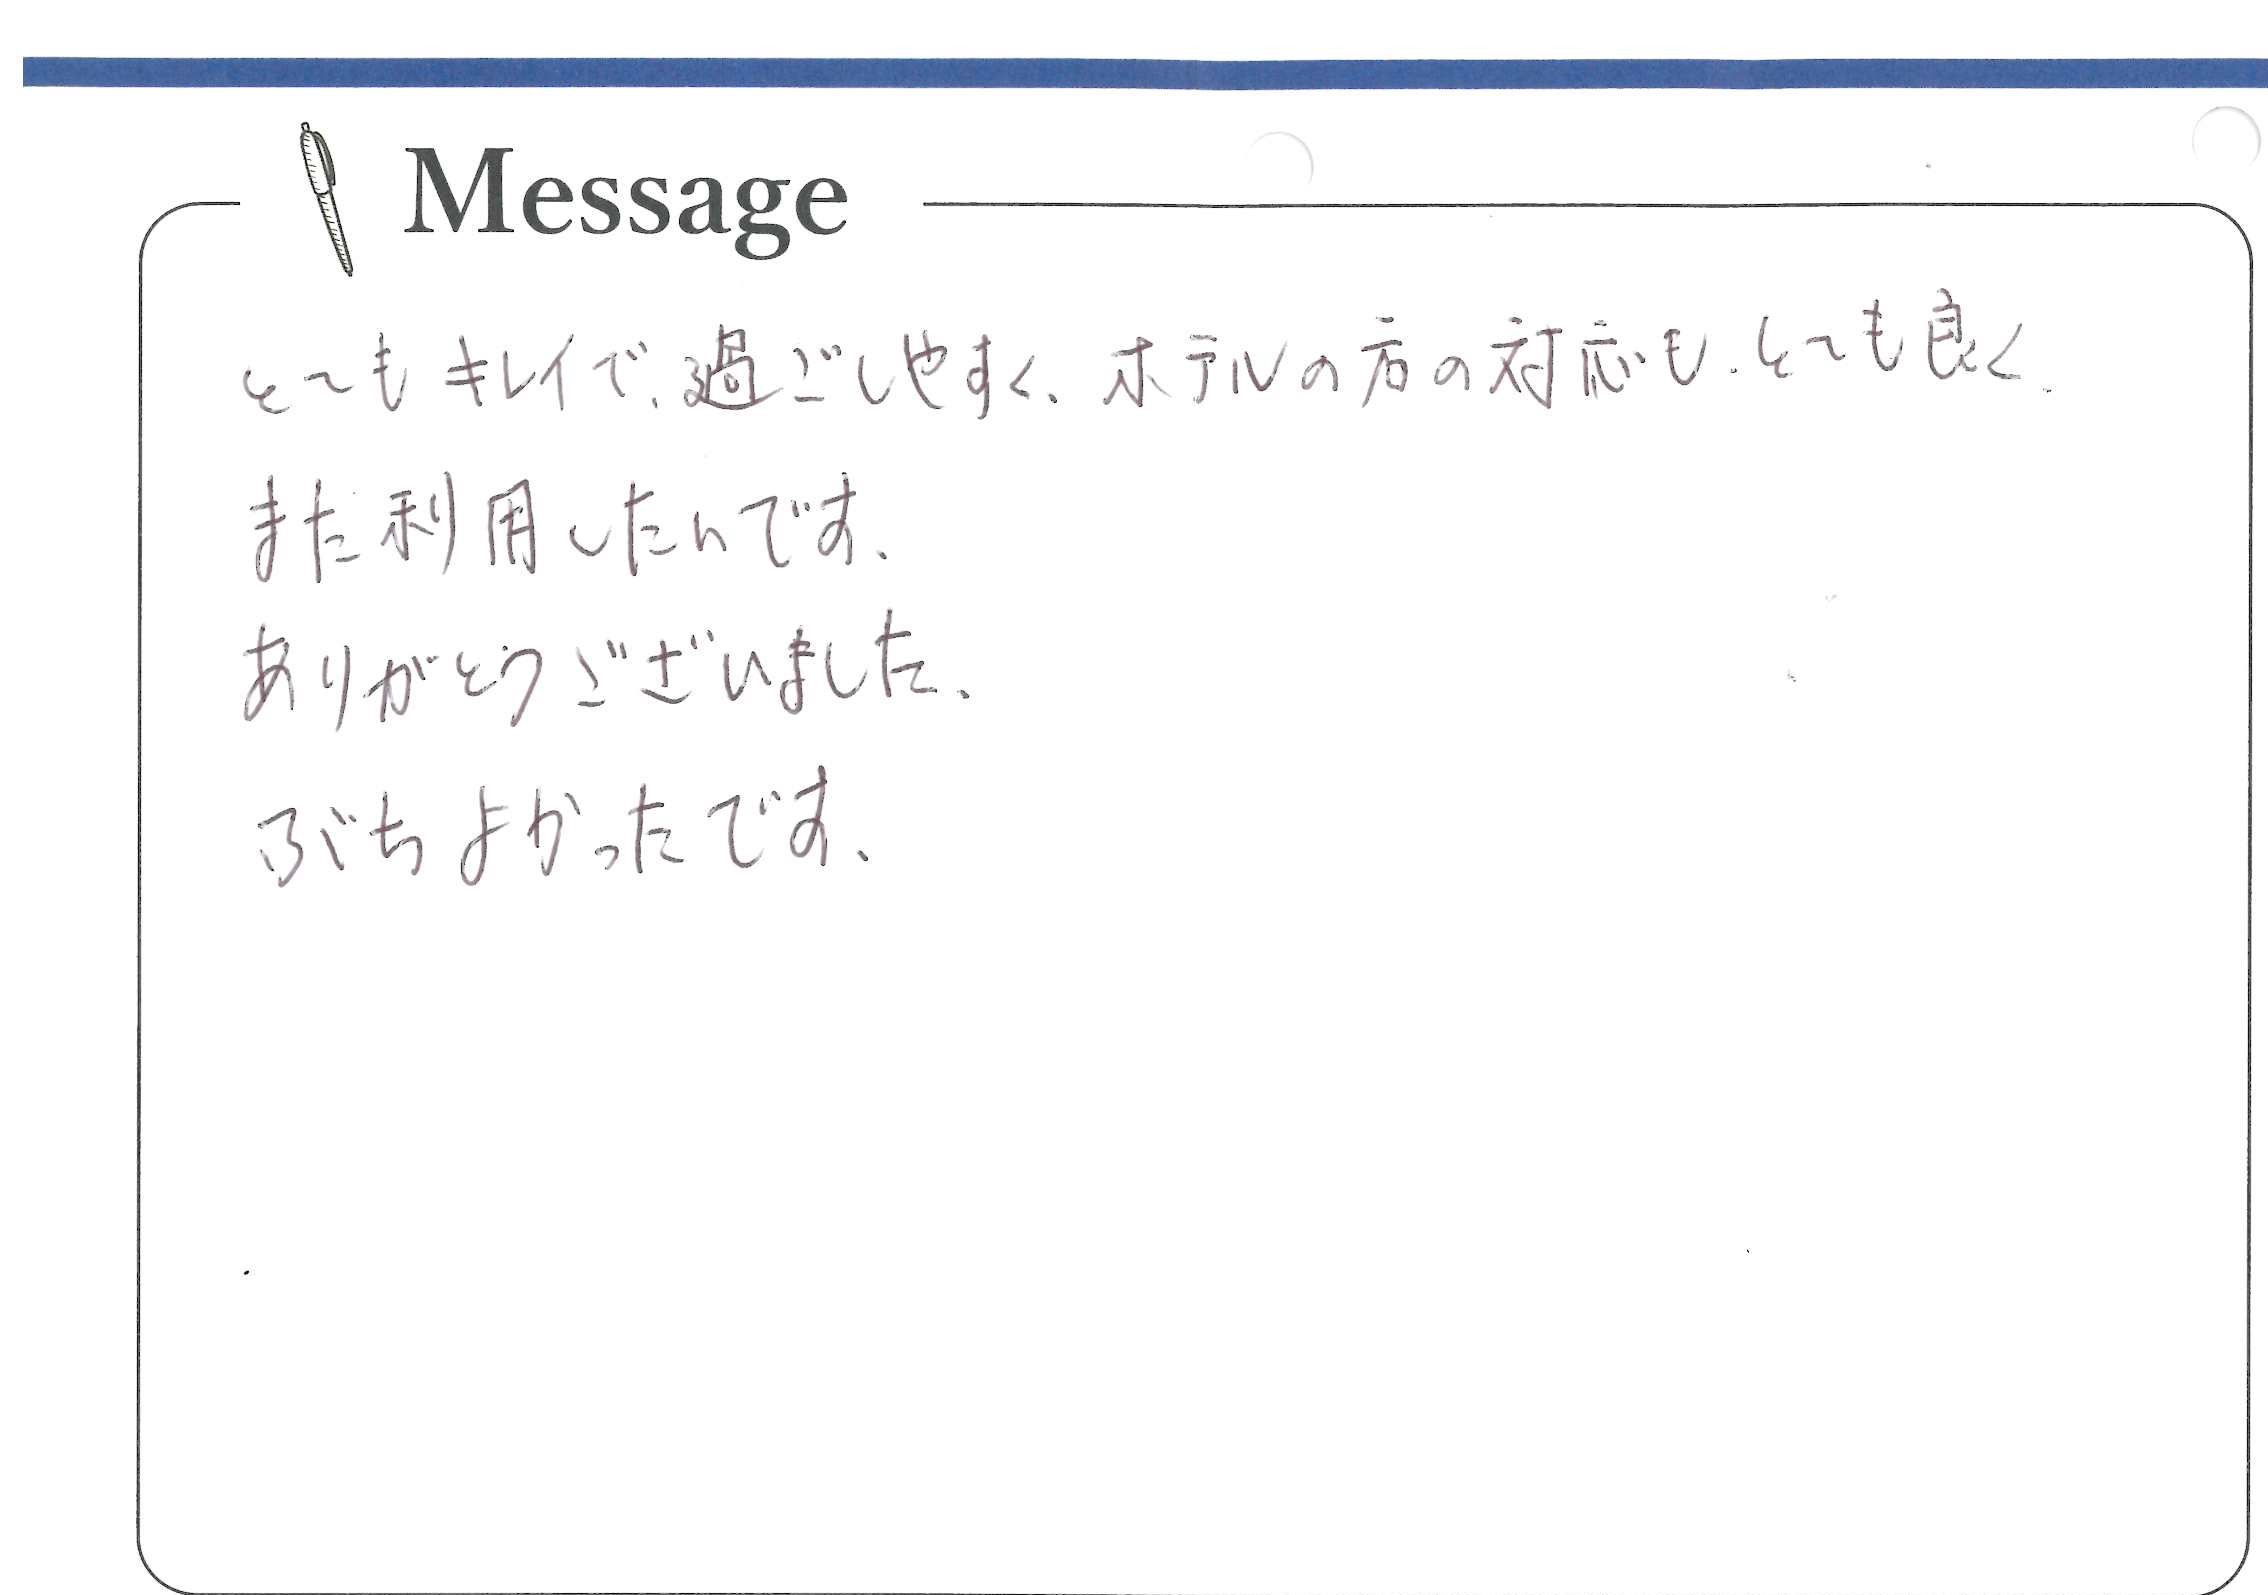 Message
とてもキレイで、過ごしやすく、ホテルの方の対応も、とても良く、
また利用したいです、
ありがとうございました、
ぶちよかったです、